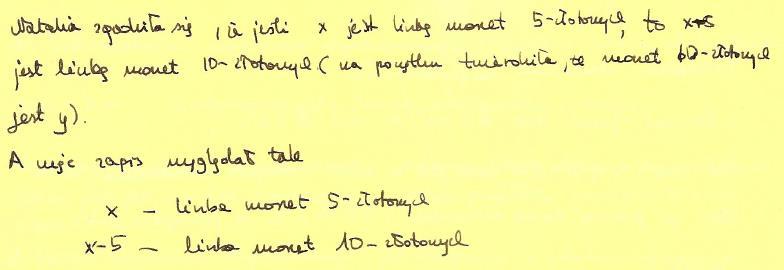 Natalia zgodziła się, że jeśli x jest liczbą monet 5-złotowych, to x-5
jest liczbą monet 10-złotowych (na początku twierdziła, że monet 10-złotowych
jest y).
A więc zapis wyglądał tak
x – liczba monet 5-złotowych
x-5 – liczba monet 10-złotowych